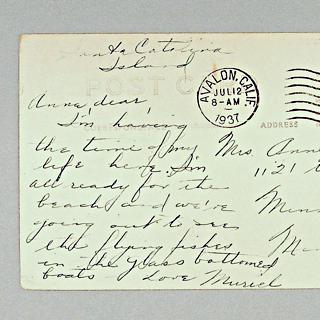 Santa Catalina
Island
POST C
AVALON, CALIF.
JUL 12
8-AM
1937
Anna dear,
I'm having
the time of my
life here. I'm
all ready for the
beach and we're
going out to see
the flying fishes
in the glass bottomed
boats Love Muriel
ADDRESS
Mrs. Anna
1121